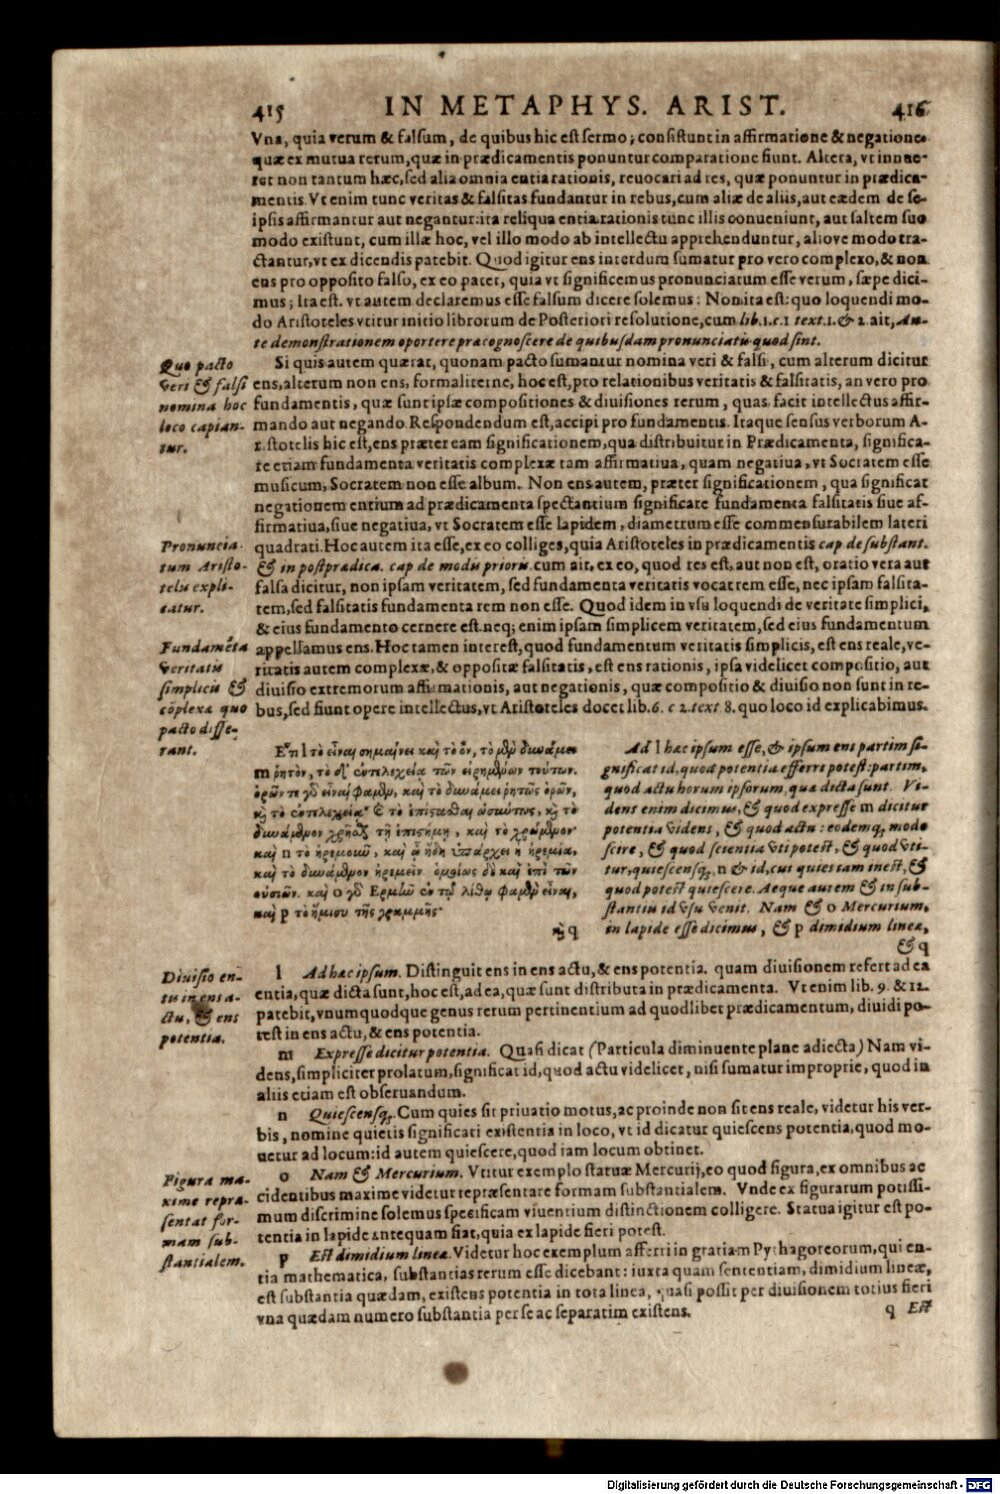 415 IN METAPHYS. ARIST. 416
Vna, quia verum & falsum, de quibus hic est sermo; consistunt in affirmatione & negatione
quæ ex mutua rerum, quæ in prædicamentis ponuntur comparatione fiunt. Altera, vt innue-
ret non tantum hæc, sed alia omnia entia rationis, reuocari ad res, quæ ponuntur in prædica-
mentis. Vt enim tunc veritas & falsitas fundantur in rebus, cum aliæ de aliis, aut eædem de se-
ipsis affirmantur aut negantur: ita reliqua entia rationis tunc illis conueniunt, aut saltem suo
modo existunt, cum illæ hoc, vel illo modo ab intellectu apprehenduntur, alióve modo tra-
ctantur, vt ex dicendis patebit. Quod igitur ens interdum sumatur pro vero complexo, & non
ens pro opposito falso, ex eo patet, quia vt significemus pronunciatum esse verum, sæpe dici-
mus; Ita est. vt autem declaremus esse falsum dicere solemus: Non ita est: quo loquendi mo-
do Aristoteles vtitur initio librorum de Posteriori resolutione, cum lib. 1. c. 1 text. 1. & 2. ait, An-
te demonstrationem oportere præcognoscere de quibusdam pronunciatis quod sint.
Quo pacto
veri & falsi
nomina hoc
loco capian-
tur.
Si quis autem quærat, quonam pacto sumantur nomina veri & falsi, cum alterum dicitur
ens, alterum non ens, formaliterne, hoc est, pro relationibus veritatis & falsitatis, an vero pro
fundamentis, quæ sunt ipsæ compositiones & diuisiones rerum, quas facit intellectus affir-
mando aut negando. Respondendum est, accipi pro fundamentis. Itaque sensus verborum A-
ristotelis hic est, ens præter eam significationem, qua distribuitur in Prædicamenta, significa-
re etiam fundamenta veritatis complexæ tam affirmatiua, quam negatiua, vt Socratem esse
musicum, Socratem non esse album. Non ens autem, præter significationem, qua significat
negationem entium ad prædicamenta spectantium significare fundamenta falsitatis siue af-
firmatiua, siue negatiua, vt Socratem esse lapidem, diametrum esse commensurabilem lateri
Pronuncia-
tum Aristo-
telis expli-
catur.
quadrati. Hoc autem ita esse, ex eo colliges, quia Aristoteles in prædicamentis cap. de substant.
& in postprædica. cap. de modis prioris. cum ait, ex eo, quod res est, aut non est, oratio vera aut
falsa dicitur, non ipsam veritatem, sed fundamenta veritatis vocat rem esse, nec ipsam falsita-
tem, sed falsitatis fundamenta rem non esse. Quod idem in vsu loquendi de veritate simplici,
& eius fundamento cernere est. neq; enim ipsam simplicem veritatem, sed eius fundamentum
Fundamẽta
veritatis
simplicis &
cõplexæ quo
pacto diffe-
rant.
appellamus ens. Hoc tamen interest, quod fundamentum veritatis simplicis, est ens reale, ve-
ritatis autem complexæ, & oppositæ falsitatis, est ens rationis, ipsa videlicet compositio, aut
diuisio extremorum affirmationis, aut negationis, quæ compositio & diuisio non sunt in re-
bus, sed fiunt opere intellectus, vt Aristoteles docet lib. 6. c 2. text 8. quo loco id explicabimus.
Ἔτι l τὸ εἶναι σημαίνει καὶ τὸ ὂν, τὸ μὲν δυνάμει
m ῥητὸν, τὸ δ' ἐντελεχείᾳ τῶν εἰρημένων τούτων.
ὁρῶν τε γὸ εἶναι φαμὲν, καὶ τὸ δυνάμει ῥητῶς ὁρῶν,
κὶ τὸ ἐντελεχείᾳ· & τὸ ἐπίστασθαι ὡσαύτως, κὶ τὸ
δυνάμενον χρῆσθαι τῇ ἐπιστήμῃ, καὶ τὸ χρώμενον·
καὶ n τὸ ἠρεμοῦν, καὶ ᾧ ἤδη ὑπάρχει ἡ ἠρεμία,
καὶ τὸ δυνάμενον ἠρεμεῖν. ὁμοίως δὲ καὶ ἐπὶ τῶν
οὐσιῶν. καὶ ο γὸ Ἑρμῆν ἐν τῷ λίθῳ φαμὲν εἶναι,
καὶ p τὸ ἥμισυ τῆς γραμμῆς·
κὶ q
Ad l hæc ipsum esse, & ipsum ens partim si-
gnificat id, quod potentia efferri potest: partim,
quod actu horum ipsorum, quæ dicta sunt. Vi-
dens enim dicimus, & quod expresse m dicitur
potentia videns, & quod actu: eodemq; modo
scire, & quod scientia vti potest, & quod vti-
tur, quiescensq;, n & id, cui quies iam inest, &
quod potest quiescere. Aeque autem & in sub-
stantiis id vsu venit. Nam & o Mercurium,
in lapide esse dicimus, & p dimidium lineæ,
& q
Diuisio en-
tis in ens a-
ctu, & ens
potentia.
l Ad hæc ipsum. Distinguit ens in ens actu, & ens potentia. quam diuisionem refert ad ea
entia, quæ dicta sunt, hoc est, ad ea, quæ sunt distributa in prædicamenta. Vt enim lib. 9. & 12.
patebit, vnumquodque genus rerum pertinentium ad quodlibet prædicamentum, diuidi po-
test in ens actu, & ens potentia.
m Expresse dicitur potentia. Quasi dicat (Particula diminuente plane adiecta) Nam vi-
dens, simpliciter prolatum, significat id, quod actu videlicet, nisi sumatur improprie, quod in
aliis etiam est obseruandum.
n Quiescensq;. Cum quies sit priuatio motus, ac proinde non sit ens reale, videtur his ver-
bis, nomine quietis significari existentia in loco, vt id dicatur quiescens potentia, quod mo-
uetur ad locum: id autem quiescere, quod iam locum obtinet.
Figura ma-
xime repræ-
sentat for-
mam sub-
stantialem.
o Nam & Mercurium. Vtitur exemplo statuæ Mercurij, eo quod figura, ex omnibus ac
cidentibus maxime videtur repræsentare formam substantialem. Vnde ex figurarum potissi-
mum discrimine solemus specificam viuentium distinctionem colligere. Statua igitur est po-
tentia in lapide antequam fiat, quia ex lapide fieri potest.
p Est dimidium lineæ. Videtur hoc exemplum afferri in gratiam Pythagoreorum, qui en-
tia mathematica, substantias rerum esse dicebant: iuxta quam sententiam, dimidium lineæ,
est substantia quædam, existens potentia in tota linea, quasi possit per diuisionem totius fieri
vna quædam numero substantia per se ac separatim existens.
q Est
Digitalisierung gefördert durch die Deutsche Forschungsgemeinschaft - DFG